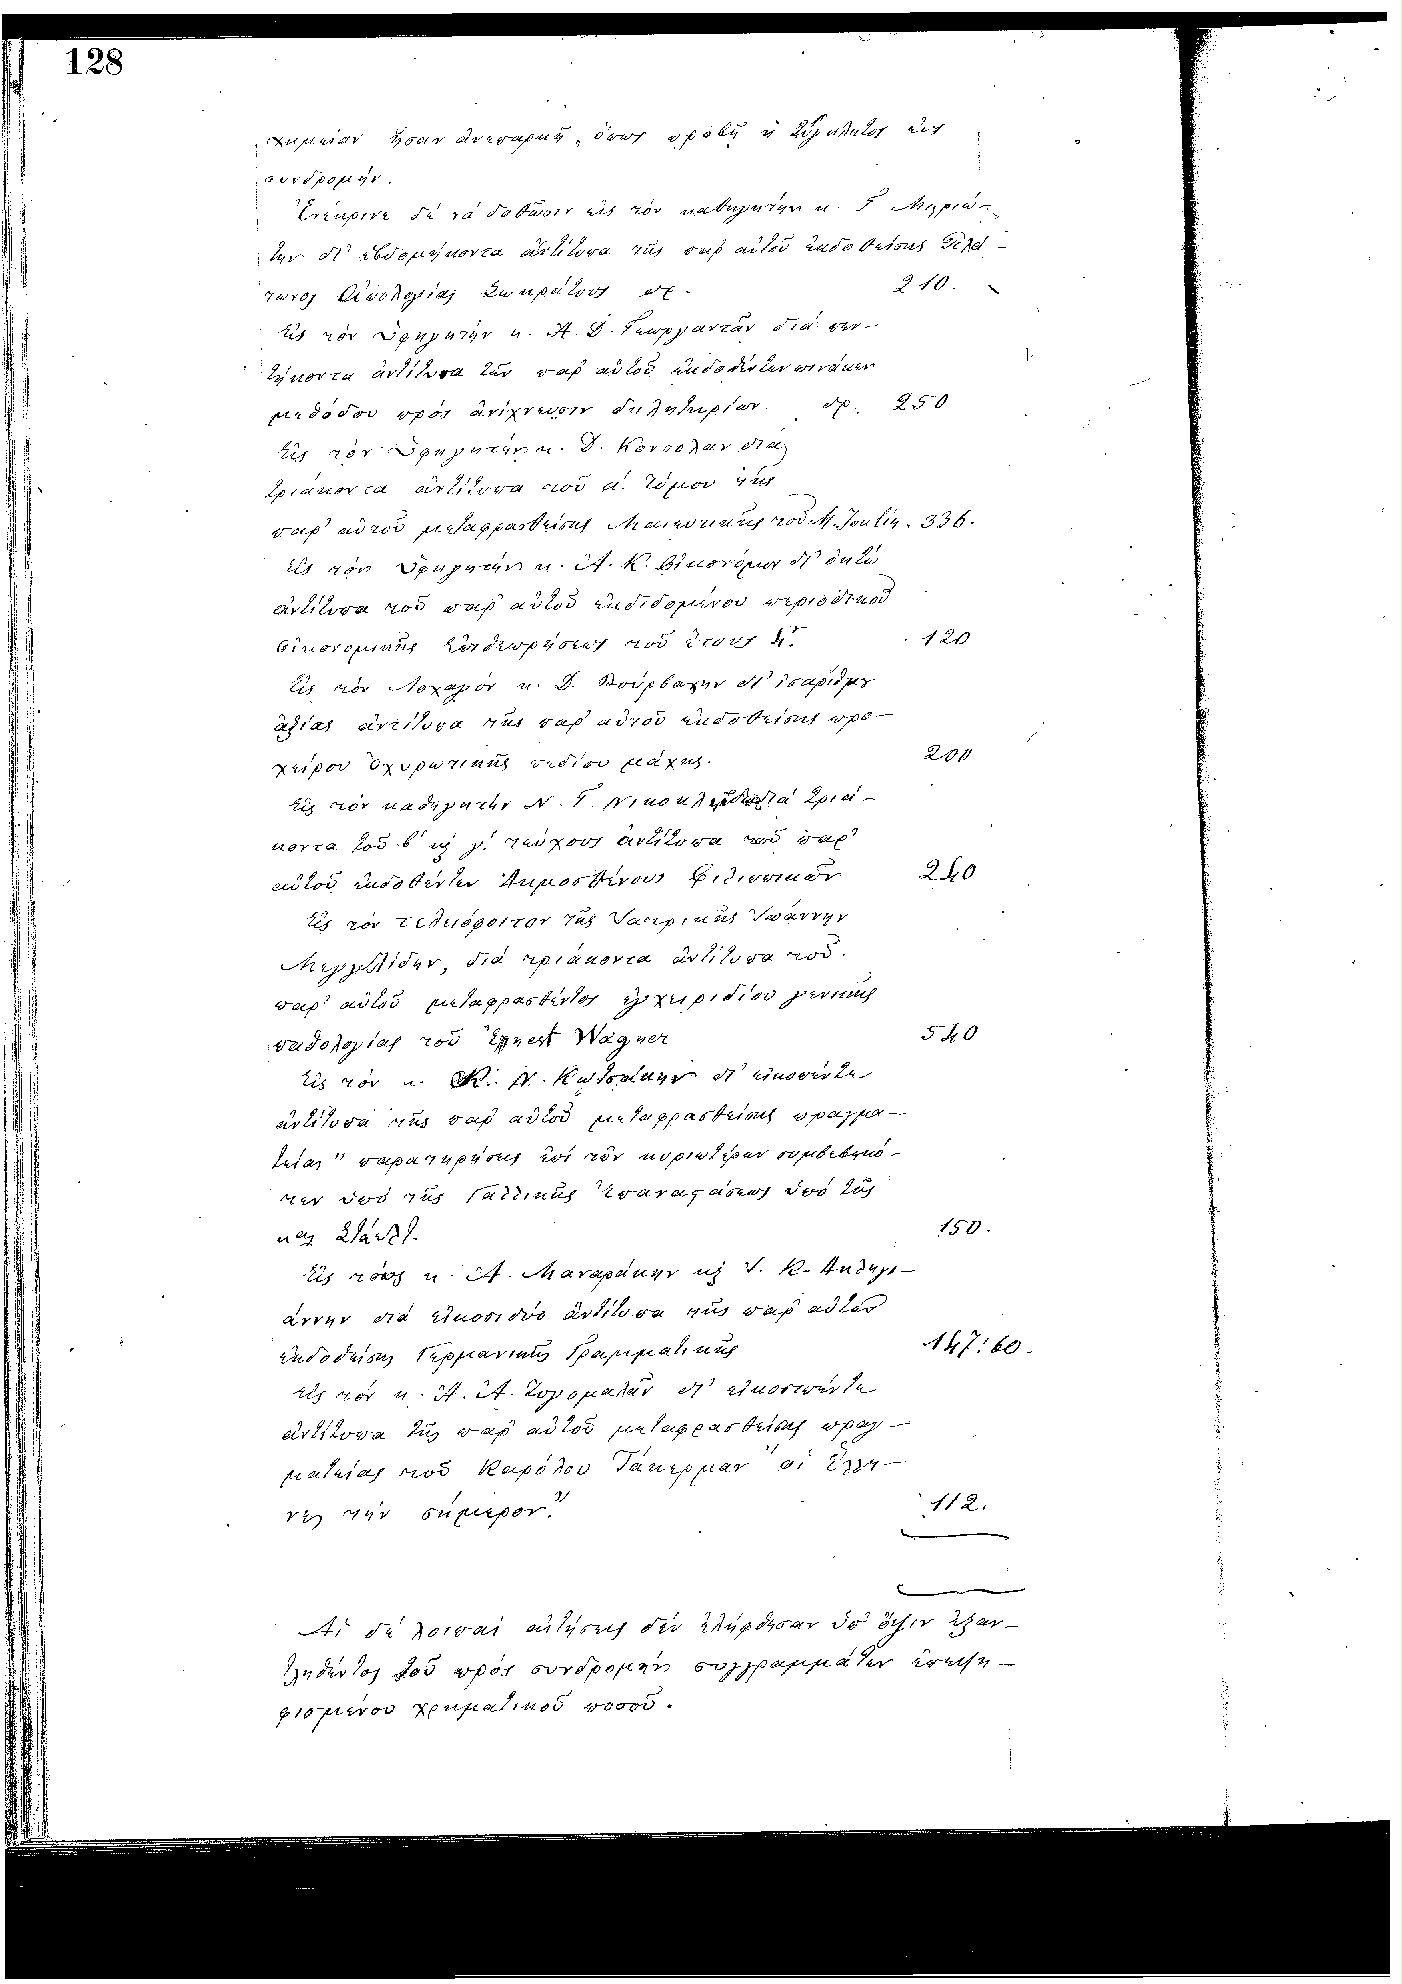 128
χημείαν ἦσαν ἀνεπαρκῆ, ὅπως προβῇ ἡ Σύγκλητος εἰς
συνδρομήν.
Ἐνέκρινε δὲ νὰ δοθῶσιν εἰς τὸν καθηγητὴν κ. Γ. Μιστριώ-
την δι' ἑβδομήκοντα ἀντίτυπα τῆς παρ' αὐτοῦ ἐκδοθείσης Πλά-
τωνος Ἀπολογίας Σωκράτους δρ. 210.
Εἰς τὸν Ὑφηγητὴν κ. Α. Δ. Γεωργαντᾶν διὰ πεν-
τήκοντα ἀντίτυπα τῶν παρ' αὐτοῦ ἐκδοθέντων πινάκων
μεθόδου πρὸς ἀνίχνευσιν δηλητηρίων δρ. 250
Εἰς τὸν Ὑφηγητὴν κ. Δ. διὰ
τριάκοντα ἀντίτυπα τοῦ α΄. τόμου τῆς
παρ' αὐτοῦ μεταφρασθείσης Μαιευτικῆς τοῦ Μ. 336.
Εἰς τὸν Ὑφηγητὴν κ. Α. Κ. Οἰκονόμον δι' ὀκτὼ
ἀντίτυπα τοῦ παρ' αὐτοῦ ἐκδιδομένου περιοδικοῦ
Οἰκονομικῆς Ἐπιθεωρήσεως τοῦ ἔτους 120
Εἰς τὸν Λοχαγὸν κ. Δ. Βούρβαχην δι' ἰσαρίθμου
ἀξίας ἀντίτυπα τῆς παρ' αὐτοῦ ἐκδοθείσης προ-
χείρου ὀχυρωτικῆς πεδίου μάχης. 200
Εἰς τὸν καθηγητὴν Ν. Γ. διὰ τριά-
κοντα τοῦ β΄ κ γ΄. τεύχους ἀντίτυπα τοῦ παρ'
αὐτοῦ ἐκδοθέντων Δημοσθένους Φιλιππικῶν 240
Εἰς τὸν τελειόφοιτον τῆς Ἰατρικῆς Ἰωάννην
διὰ τριάκοντα ἀντίτυπα τοῦ
παρ' αὐτοῦ μεταφρασθέντος ἐγχειριδίου γενικῆς
παθολογίας τοῦ Ernest Wagner 540
Εἰς τὸν κ. Κ. Ν. δι' εἰκοσιπέντε
ἀντίτυπα τῆς παρ' αὐτοῦ μεταφρασθείσης πραγμα-
τείας " παρατηρήσεις ἐπὶ τῶν κυριωτέρων συμβεβηκό-
των ὑπὸ τῆς Γαλλικῆς Ἐπαναστάσεως ὑπὸ τῆς
κας Στάελ". 150.
Εἰς τοὺς κ. Α. Μαναράκην κ Ἰ. Κ. Δεληγι-
άννην διὰ εἰκοσιδύο ἀντίτυπα τῆς παρ' αὐτῶν
ἐκδοθείσης Γερμανικῆς Γραμματικῆς 147:60.
Εἰς τὸν κ. Α. Α. δι' εἰκοσιπέντε
ἀντίτυπα τῆς παρ' αὐτοῦ μεταφρασθείσης πραγ-
ματείας τοῦ Καρόλου Τάκερμαν "οἱ Ἕλλη-
νες τὴν σήμερον." 112.
Αἱ δὲ λοιπαὶ αἰτήσεις δὲν ἐλήφθησαν ὑπ' ὄψιν ἐξαν-
τληθέντος τοῦ πρὸς συνδρομὴν συγγραμμάτων ἐπεψη-
φισμένου χρηματικοῦ ποσοῦ.